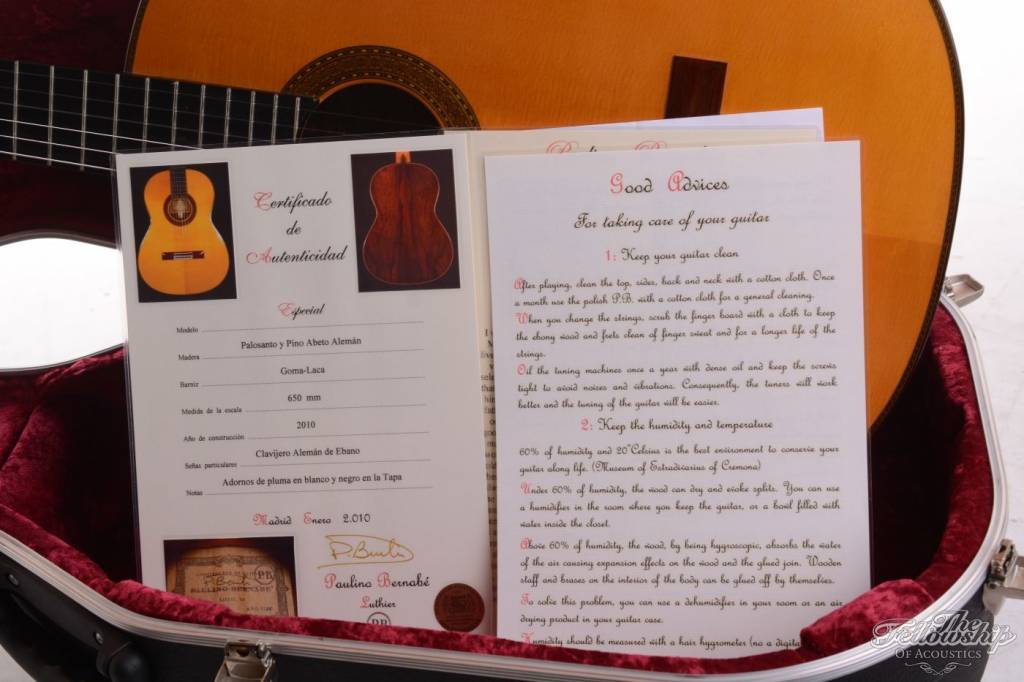 Certificado
de
Autenticidad
Especial
Modelo
Palosanto y Pino Abeto Alemán
Madera
Goma-Laca
Barniz
650 mm
Medida de la escala
2010
Año de construcción
Clavijero Alemán de Ebano
Señas particulares
Adornos de pluma en blanco y negro en la Tapa
Notas
Madrid Enero 2.010
P.Bernabé
Paulino Bernabé
Luthier
PB
Good Advices
For taking care of your guitar
1: Keep your guitar clean
After playing, clean the top, sides, back and neck with a cotton cloth. Once
a month use the polish P.B. with a cotton cloth for a general cleaning.
When you change the strings, scrub the finger board with a cloth to keep
the ebony wood and frets clean of finger sweat and for a longer life of the
strings.
Oil the tuning machines once a year with dense oil and keep the screws
tight to avoid noises and vibrations. Consequently, the tuners will work
better and the tuning of the guitar will be easier.
2: Keep the humidity and temperature
60% of humidity and 20°Celsius is the best environment to conserve your
guitar along life. (Museum of Estradivarius of Cremona)
Under 60% of humidity, the wood can dry and evoke splits. You can use
a humidifier in the room where you keep the guitar, or a bowl filled with
water inside the closet.
Above 60% of humidity, the wood, by being hygroscopic, absorbs the water
of the air causing expansion effects on the wood and the glued join. Wooden
staff and brases on the interior of the body can be glued off by themselves.
To solve this problem, you can use a dehumidifier in your room or an air
drying product in your guitar case.
Humidity should be measured with a hair hygrometer (no a digital
The
Fellowship
OF ACOUSTICS